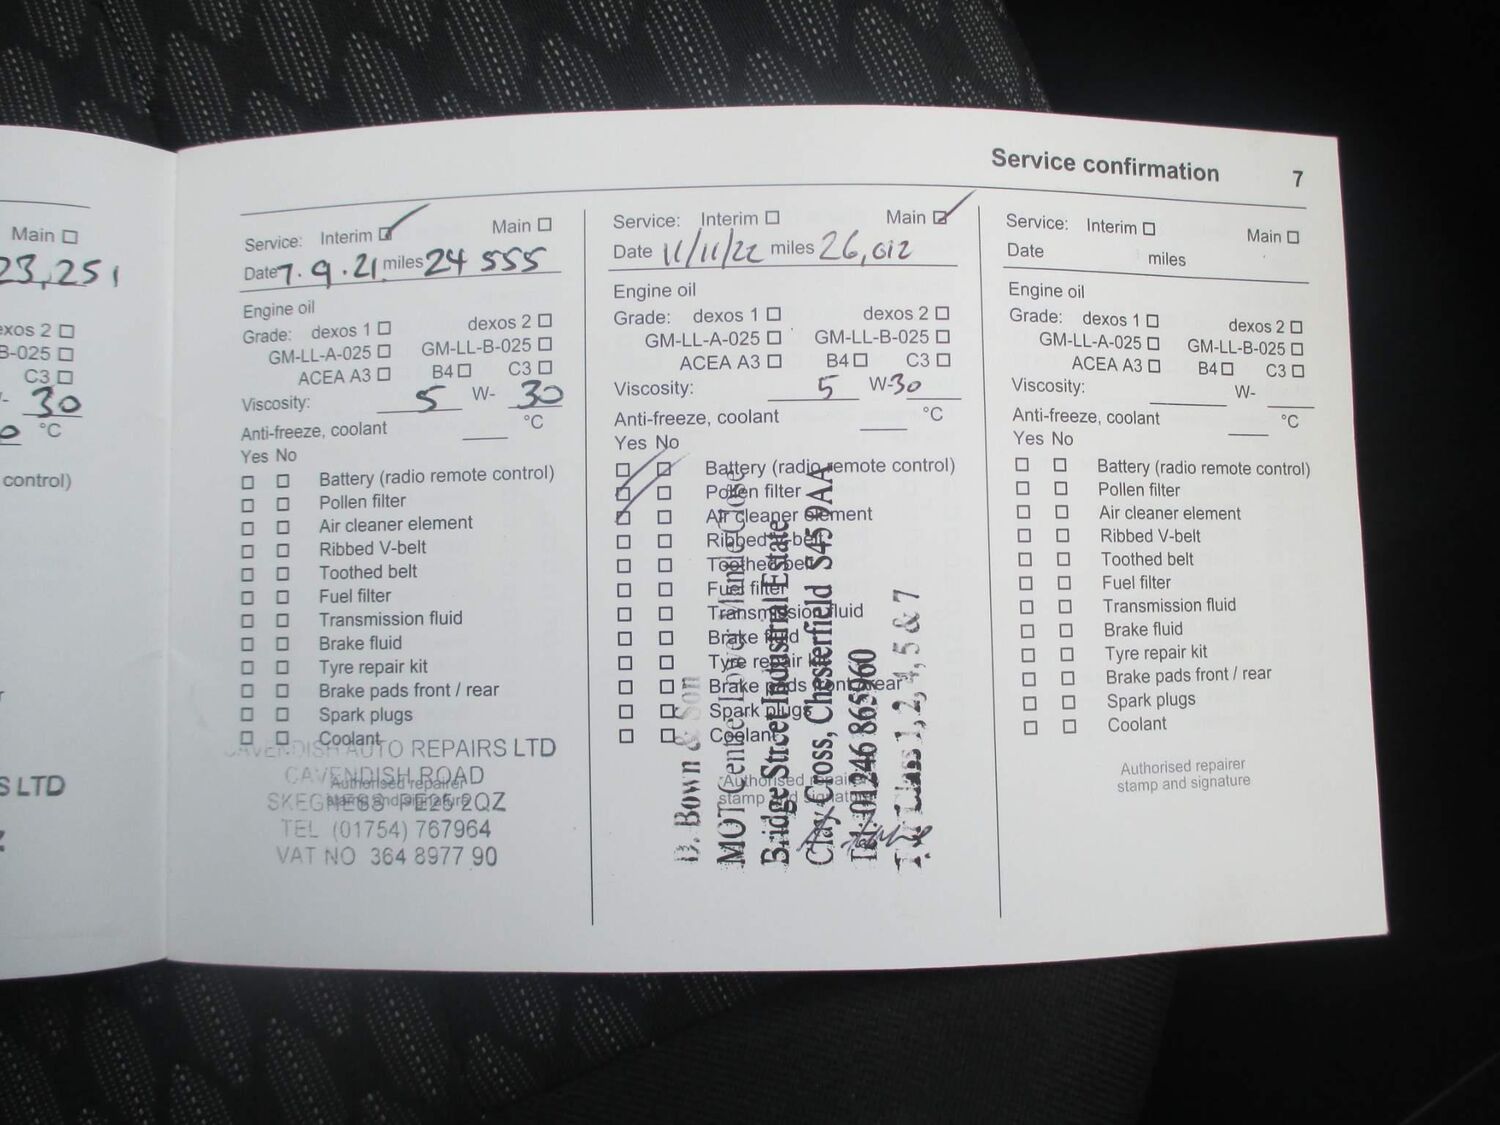 Service confirmation 7
Main ☐
23,251
exos 2 ☐
B-025 ☐
C3 ☐
- 30
°C
control)
S LTD
Service: Interim ☑ Main ☐
Date 7.9.21 miles 24 555
Engine oil
Grade: dexos 1 ☐ dexos 2 ☐
GM-LL-A-025 ☐ GM-LL-B-025 ☐
ACEA A3 ☐ B4 ☐ C3 ☐
Viscosity: 5 W- 30
Anti-freeze, coolant °C
Yes No
☐ ☐ Battery (radio remote control)
☐ ☐ Pollen filter
☐ ☐ Air cleaner element
☐ ☐ Ribbed V-belt
☐ ☐ Toothed belt
☐ ☐ Fuel filter
☐ ☐ Transmission fluid
☐ ☐ Brake fluid
☐ ☐ Tyre repair kit
☐ ☐ Brake pads front / rear
☐ ☐ Spark plugs
☐ ☐ Coolant
CAVENDISH AUTO REPAIRS LTD
CAVENDISH ROAD
Authorised repairer
SKEGNESS PE25 2QZ
stamp and signature
TEL (01754) 767964
VAT NO 364 8977 90
Service: Interim ☐ Main ☑
Date 11/11/22 miles 26,012
Engine oil
Grade: dexos 1 ☐ dexos 2 ☐
GM-LL-A-025 ☐ GM-LL-B-025 ☐
ACEA A3 ☐ B4 ☐ C3 ☐
Viscosity: 5 W-30
Anti-freeze, coolant °C
Yes No
☐ ☐ Battery (radio remote control)
☐ ☐ Pollen filter
☐ ☐ Air cleaner element
☐ ☐ Ribbed V-belt
☐ ☐ Toothed belt
☐ ☐ Fuel filter
☐ ☐ Transmission fluid
☐ ☐ Brake fluid
☐ ☐ Tyre repair kit
☐ ☐ Brake pads front / rear
☐ ☐ Spark plugs
☐ ☐ Coolant
Authorised repairer
stamp and signature
D. Bown & Son
MOT Centre Close
Bridge Street Industrial Estate
Clay Cross, Chesterfield S45 9AA
Tel: 01246 865960
Class 1, 2, 4, 5 & 7
Service: Interim ☐ Main ☐
Date miles
Engine oil
Grade: dexos 1 ☐ dexos 2 ☐
GM-LL-A-025 ☐ GM-LL-B-025 ☐
ACEA A3 ☐ B4 ☐ C3 ☐
Viscosity: W-
Anti-freeze, coolant °C
Yes No
☐ ☐ Battery (radio remote control)
☐ ☐ Pollen filter
☐ ☐ Air cleaner element
☐ ☐ Ribbed V-belt
☐ ☐ Toothed belt
☐ ☐ Fuel filter
☐ ☐ Transmission fluid
☐ ☐ Brake fluid
☐ ☐ Tyre repair kit
☐ ☐ Brake pads front / rear
☐ ☐ Spark plugs
☐ ☐ Coolant
Authorised repairer
stamp and signature